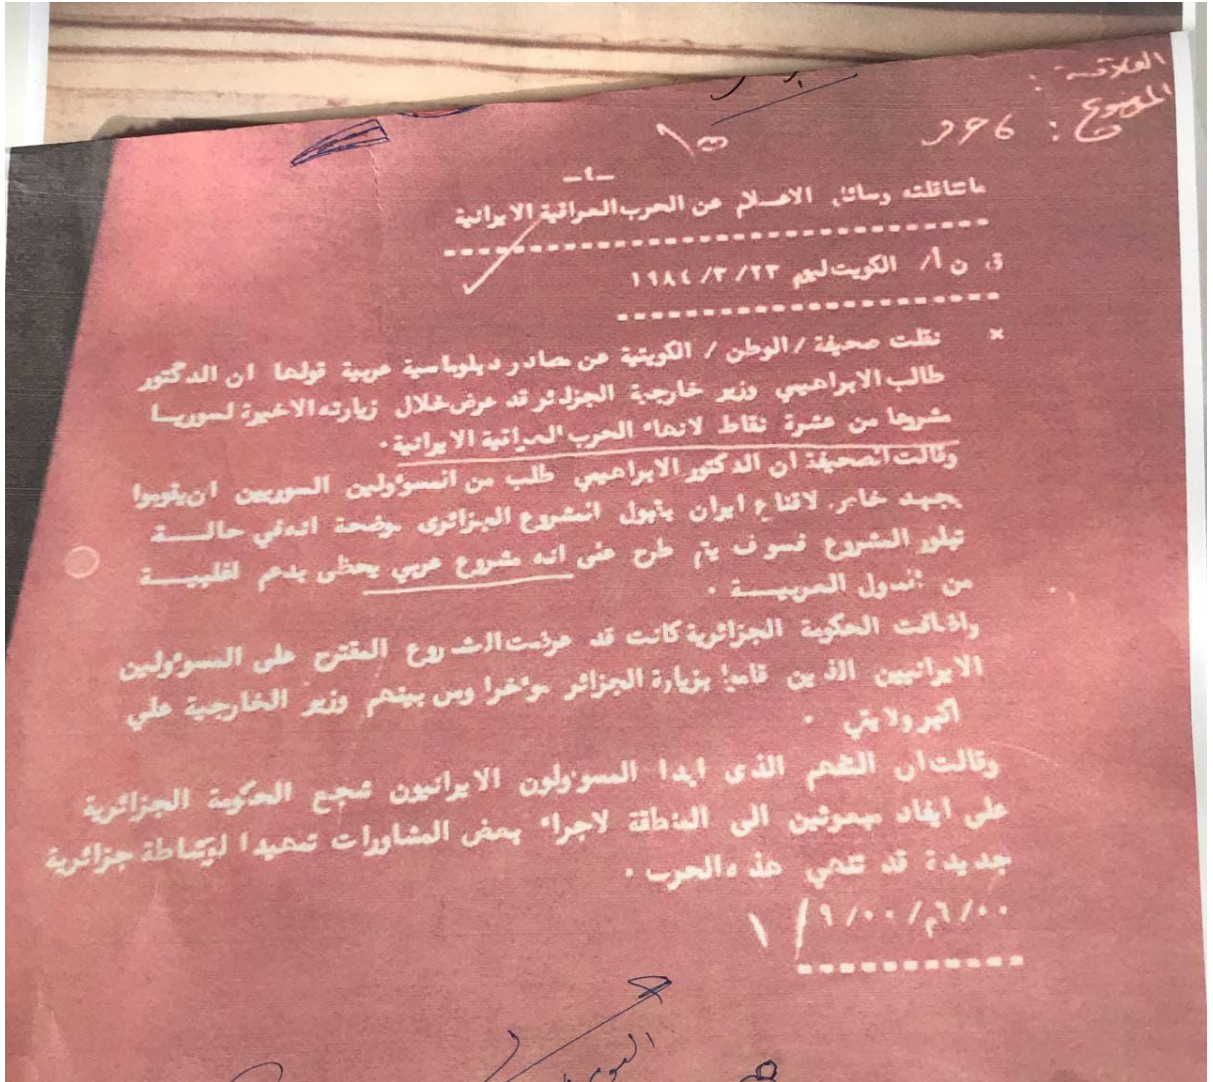 العلاقة :
الموضوع :
-٤-
ماتناقلته وسائل الاعلام عن الحرب العراقية الايرانية
ق ن أ/ الكويت ليوم ٢٣/ ٣/ ١٩٨٤
× نقلت صحيفة / الوطن / الكويتية عن مصادر دبلوماسية عربية قولها ان الدكتور
طالب الابراهيمي وزير خارجية الجزائر قد عرض خلال زيارته الاخيرة لسوريا
مشروعا من عشرة نقاط لانهاء الحرب العراقية الايرانية .
وقالت الصحيفة ان الدكتور الابراهيمي طلب من المسؤولين السوريين ان يقوموا
بجهد خاص لاقناع ايران بقبول المشروع الجزائرى موضحة انه في حالــة
تبلور المشروع فسوف يتم طرح على انه مشروع عربي يحظى بدعم اغلبيــة
من الدول العربيــة .
واضافت الحكومة الجزائرية كانت قد عرضت المشروع المقترح على المسؤولين
الايرانيين الذين قاموا بزيارة الجزائر مؤخرا ومن بينهم وزير الخارجية علي
اكبر ولايتي .
وقالت ان التفهم الذى ابدا المسؤولون الايرانيون شجع الحكومة الجزائرية
على ايفاد مبعوثين الى المنطقة لاجراء بعض المشاورات تمهيدا لوساطة جزائرية
جديدة قد تنهي هذه الحرب .
٦/٠٠م/ ٩/٠٠/ ١